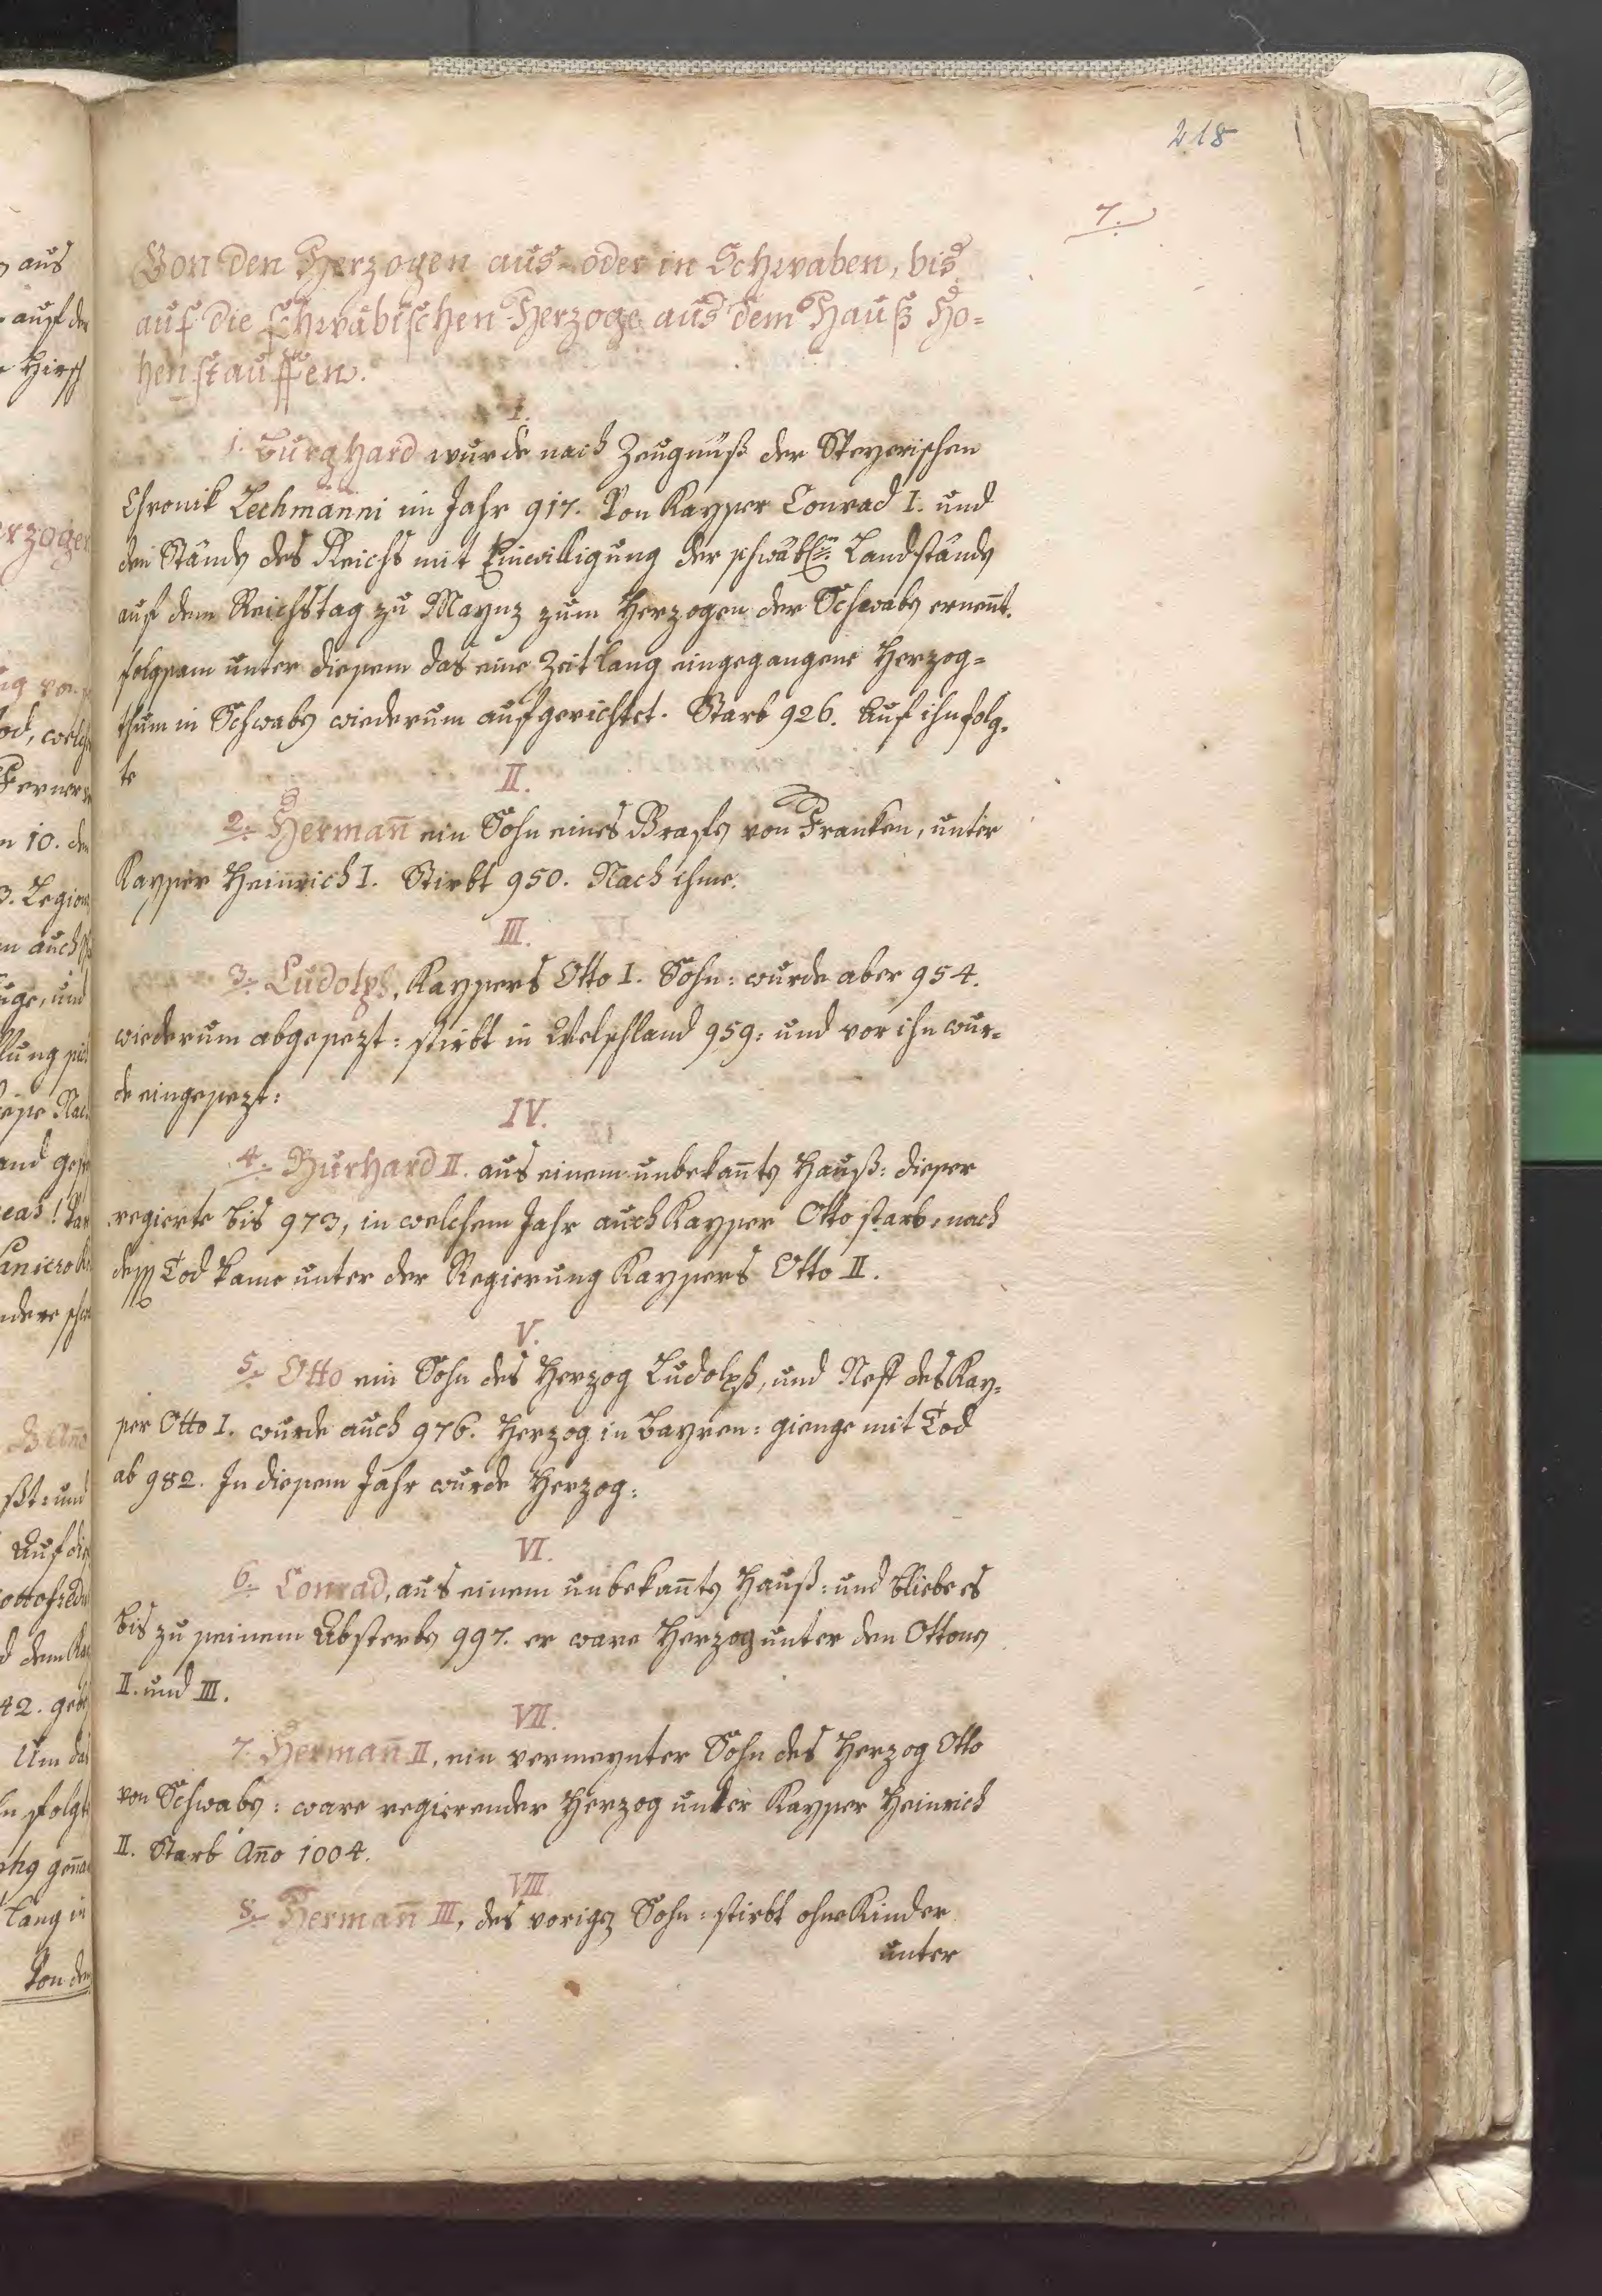 218
7.
Von den Herzogen aus- oder in Schwaben, bis
auf die schwäbischen Herzoge aus dem Hauß Ho=
henstauffen.
I.
1. Burghard wurde nach Zeugnuß der Speyerischen
Chronik Lechmanni im Jahr 917. Von Kayser Conrad I. und
den Ständen des Reichs mit Einwilligung der schwäb. Landständen
auf dem Reichstag zu Maynz zum Herzogen der Schwaben ernent.
folgsam unter diesem das eine Zeitlang eingegangene Herzog=
thum in Schwaben wiederum aufgerichtet. Starb 926. Auf ihn folg=
te
II.
2. Herman̄ ein Sohn eines Grafen von Franken, unter
Kayser Heinrich I. Stirbt 950. Nach ihme.
III.
3. Ludolph, Kaysers Otto I. Sohn: wurde aber 954.
wiederum abgesezt: stirbt in Welschland 959: und vor ihn wur=
de eingesezt:
IV.
4. Burhard II. aus einem unbekan̄ten Hauß: dieser
regierte bis 973, in welchem Jahr auch Kayser Otto starb, nach
dess Tod kame unter der Regierung Kaysers Otto II.
V.
5. Otto ein Sohn des Herzog Ludolph, und Neff des Kay=
ser Otto I. wurde auch 976. Herzog in Bayren: gienge mit Tod
ab 982. In diesem Jahr wurde Herzog:
VI.
6. Conrad, aus einem unbekan̄ten Hauß: und bliebe es
bis zu seinem Absterben 997. er ware Herzog unter den Ottonen
II. und III.
VII.
7. Herman̄ II, ein vermeynter Sohn des Herzog Otto
von Schwaben: ware regierender Herzog unter Kayser Heinrich
II. Starb An̄o 1004.
VIII.
8. Herman̄ III, des vorigen Sohn: stirbt ohne Kinder
unter